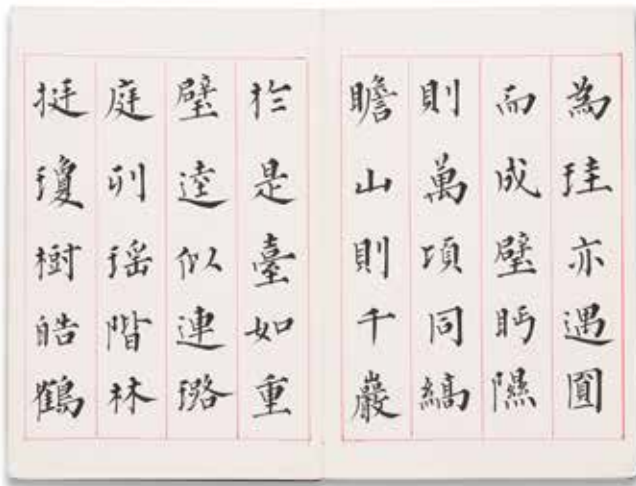 為珪亦遇圓
而成璧眄隰
則萬頃同縞
瞻山則千巖
於是臺如重
璧逵似連璐
庭列瑤階林
挺瓊樹皓鶴